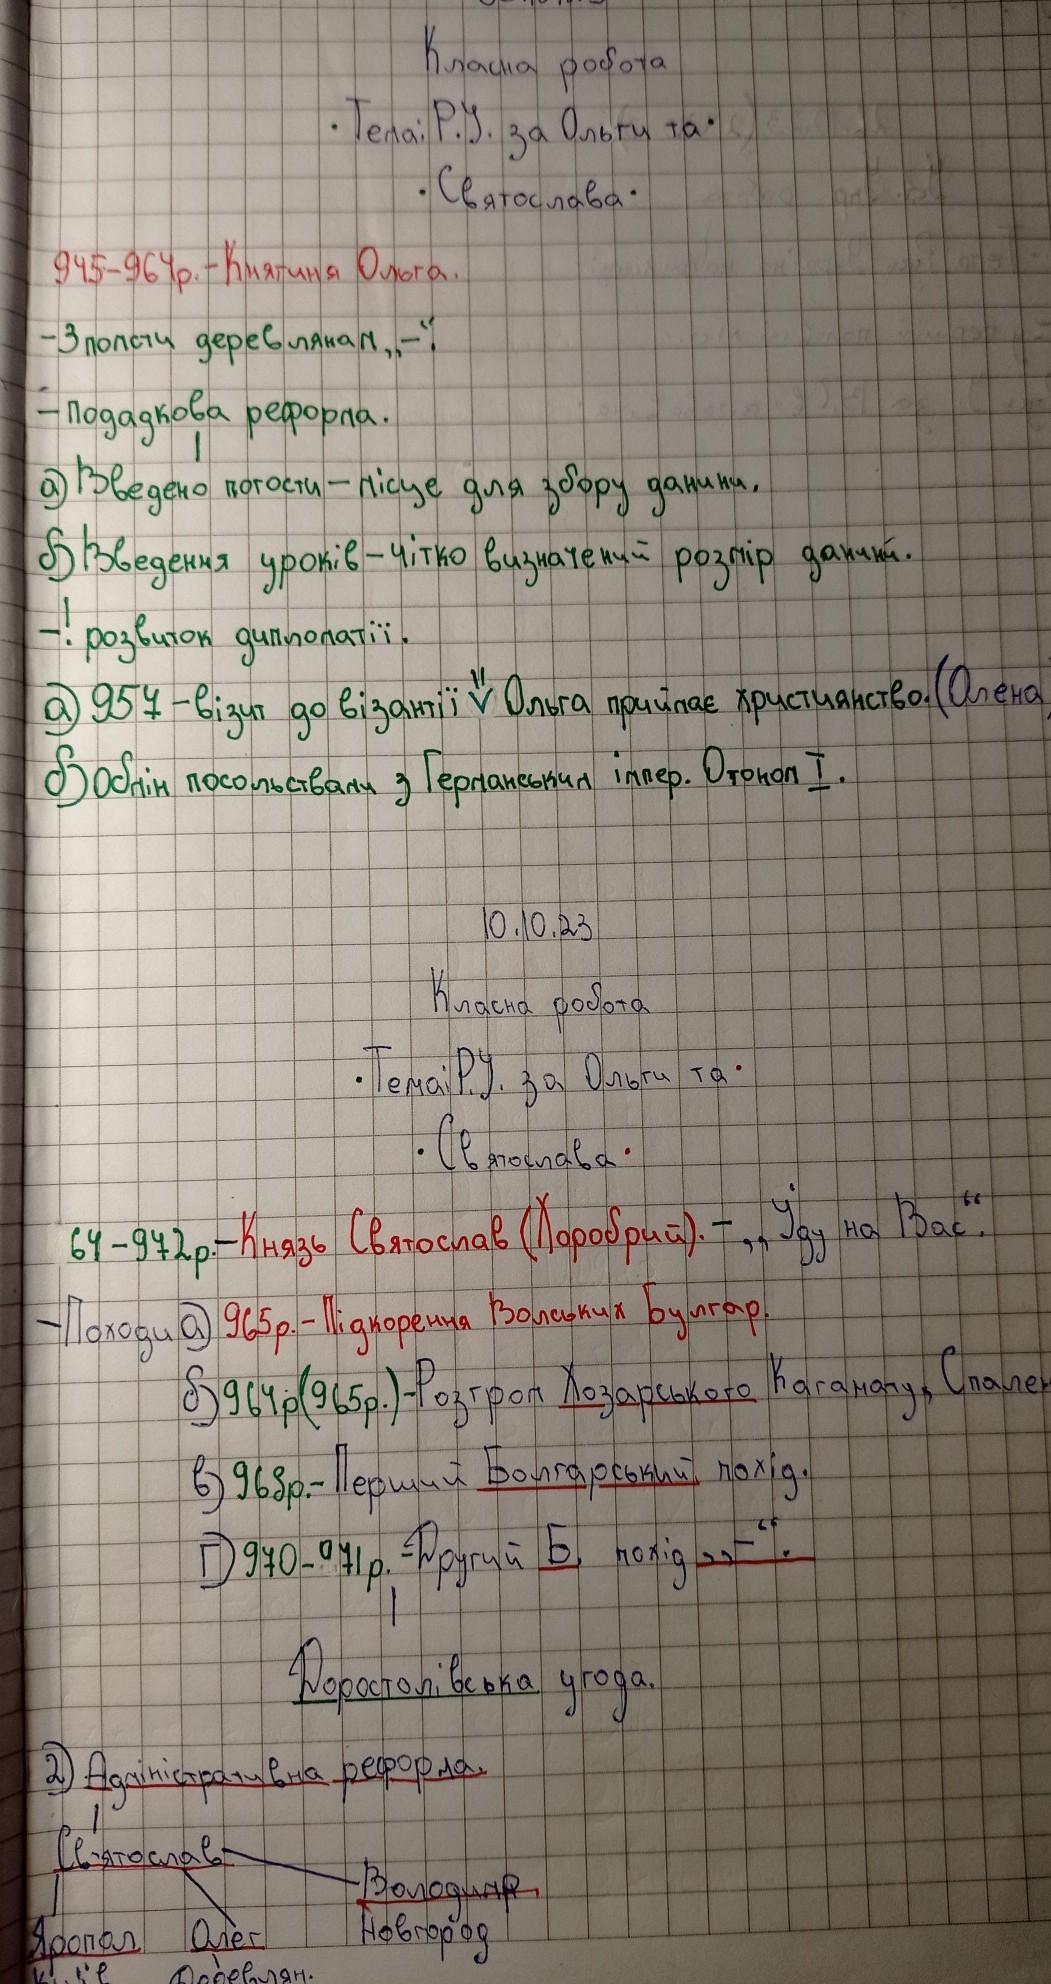 Класна робота
·Тема: Р.У. за Ольги та·
·Святослава·
945-964р.-Княгиня Ольга.
-Зпомсти деревлянам „-“.
-подадкова реформа.
а) Введено погости-місце для збору данини.
б) Введення уроків-чітко визначений розмір данини.
-! розвиток дипломатії.
а) 957-візит до візантії Ольга приймає християнство. (Олена
б) Обмін посольствами з Германським імпер. Отоном I.
10.10.23
Класна робота
·Тема: Р.У. за Ольги та·
·Святослава·
64-972р.-Князь Святослав (Хоробрий).-„Йду на Вас“.
-Походи а) 965р.-Підкорення Волських Булгар.
б) 964р(965р.)-Розгром Хозарського Каганату, Спален
в) 968р.-Перший Болгарський похід.
г) 970-971р.-Другий Б. похід „-“.
Доростолівська угода.
2) Адміністративна реформа.
Святослав
Володимр
Яропол Олег Новгород
Київ Деревлян.